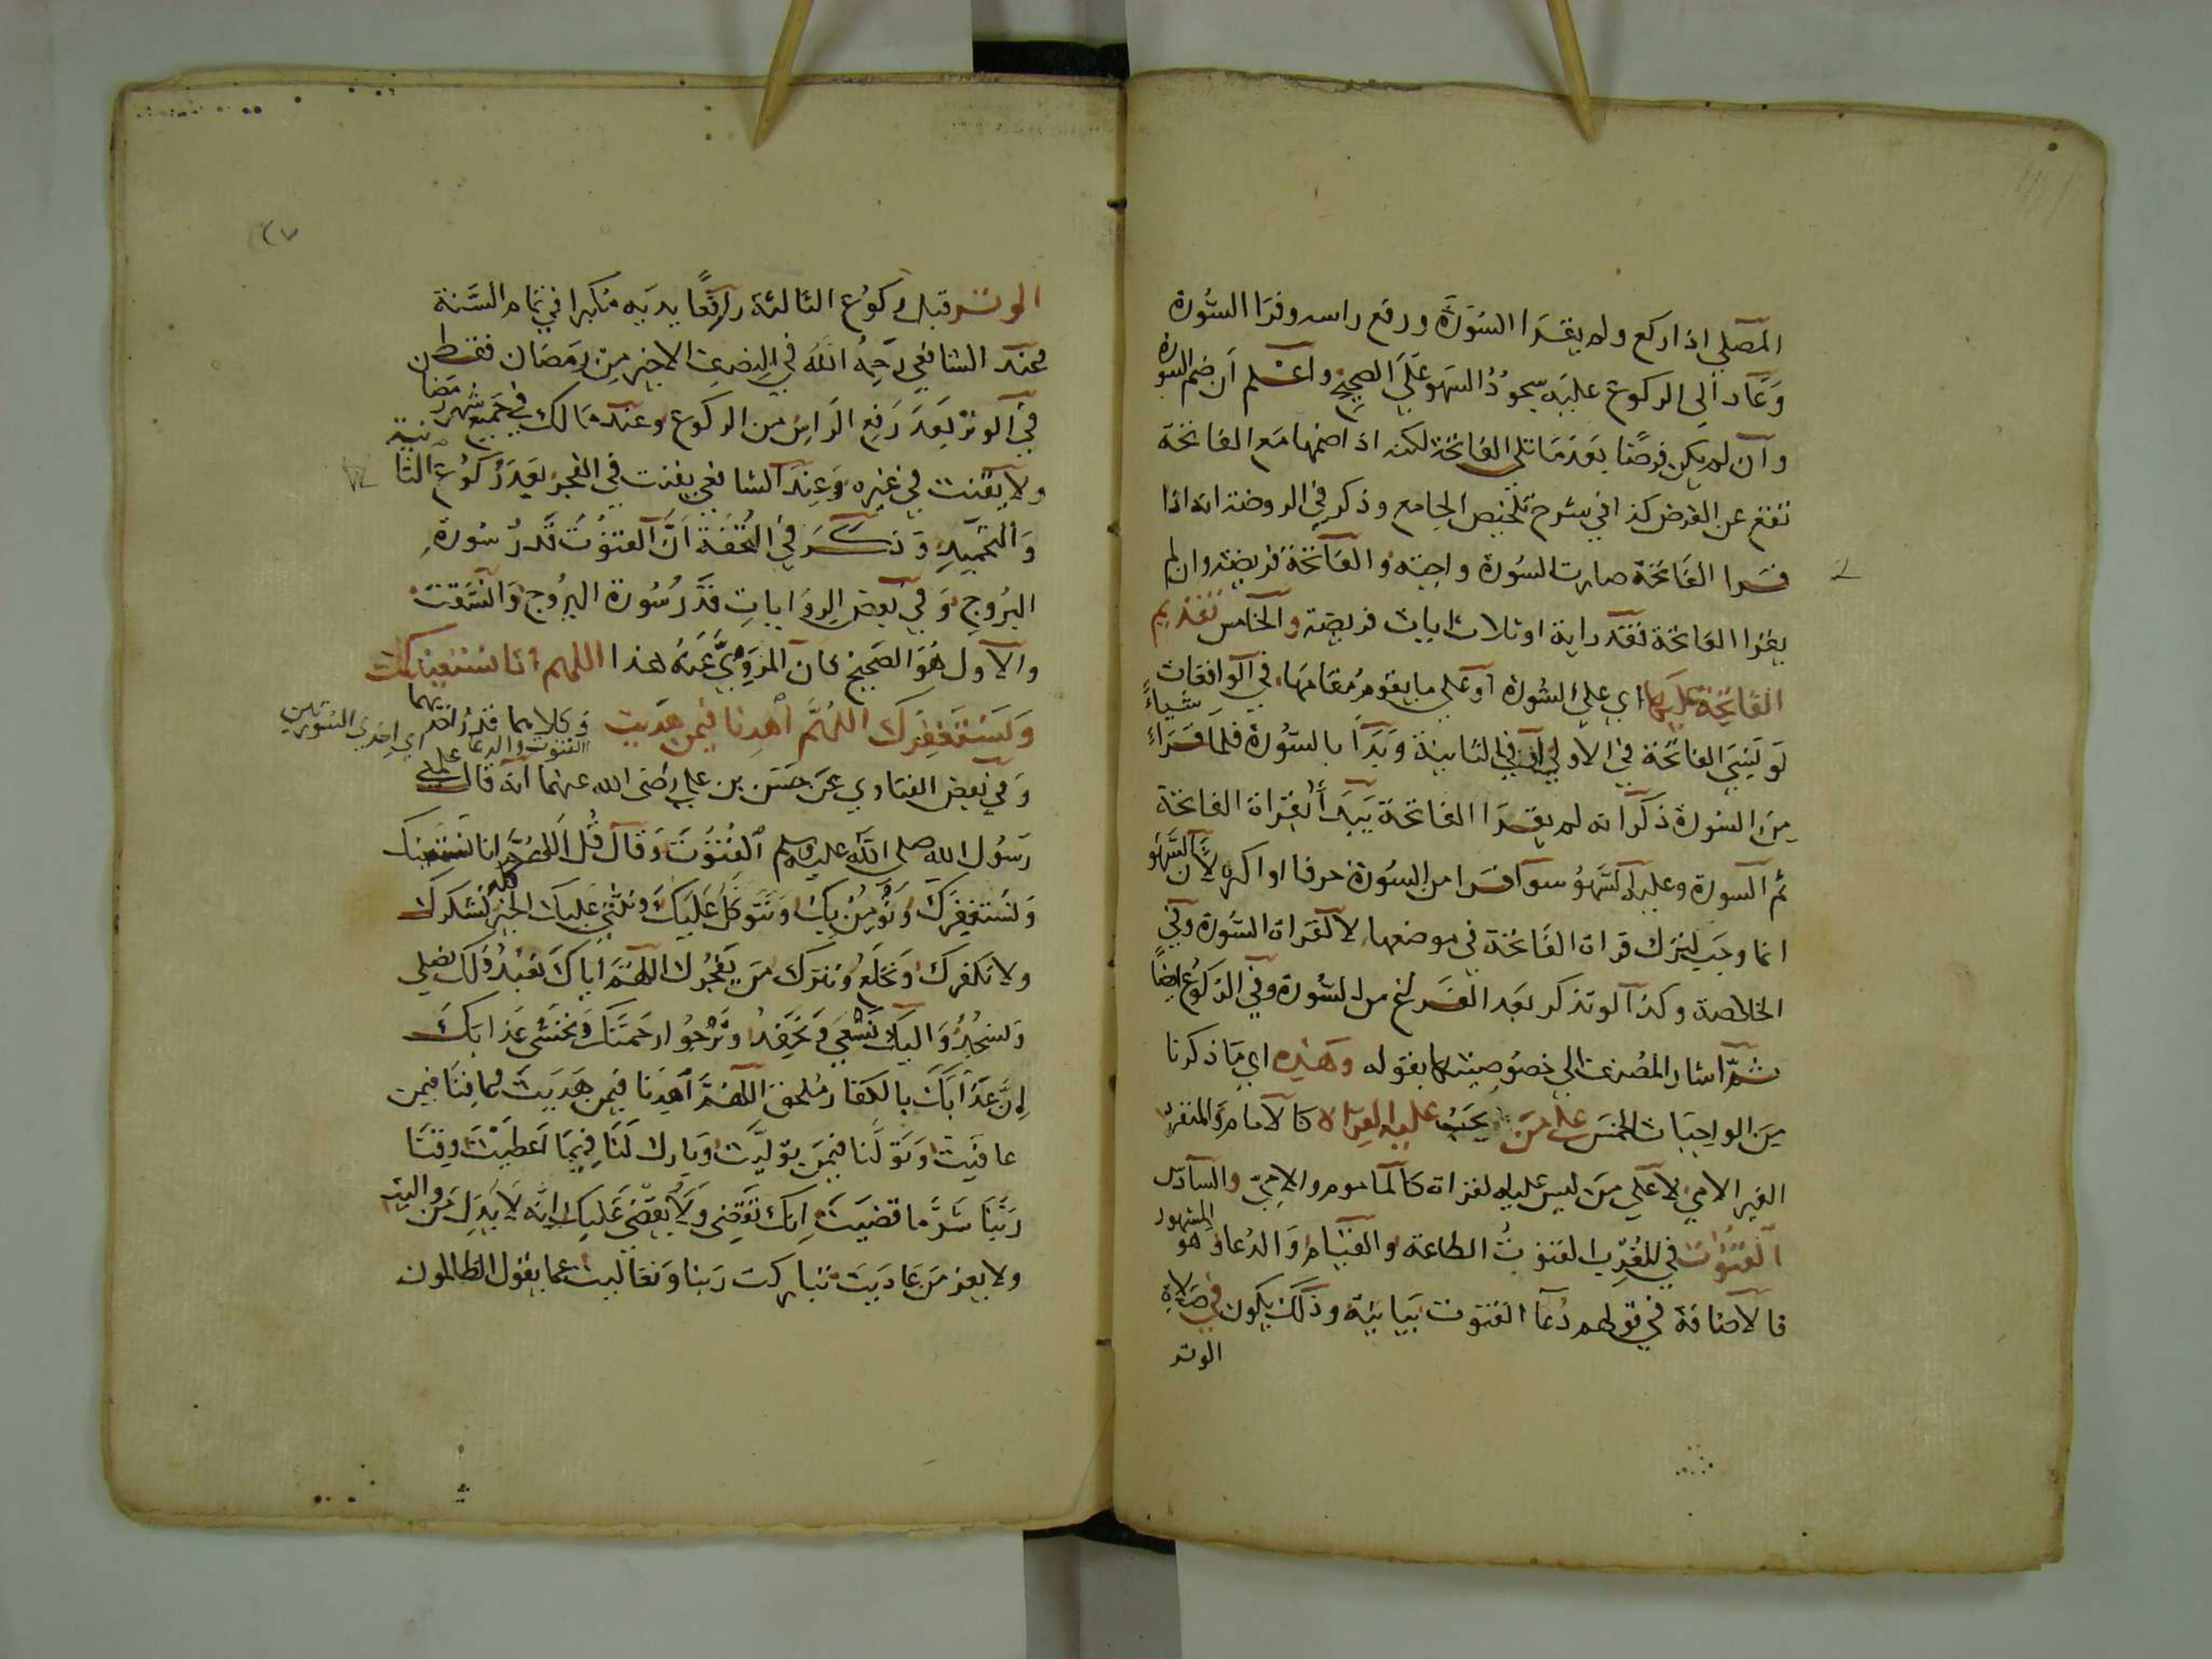 المصلي اذا ركع ولم يقرا السورة ورفع راسه وقرا السورة
وعاد الى الركوع عليه سجود السهو على الصحيح واعلم ان ضم السورة
وان لم يكن فرضا بعد ما تلي الفاتحة لكنه اذا ضمها مع الفاتحة
تقع عن الفرض كذا في شرح تلخيص الجامع وذكر في الروضة انه اذا
قرا الفاتحة صارت السورة واجبة والفاتحة فريضة وان لم
يقرا الفاتحة فقدر اية او ثلاث ايات فريضة والخامس تقديم
الفاتحة عليها اي على السورة او على ما يقوم مقامها في الواقعات
لو نسي الفاتحة في الاولى او في الثانية وبدا بالسورة فلما قراء شياء
من السورة ذكر انه لم يقرا الفاتحة يبدا بقراة الفاتحة
ثم السورة وعليه السهو سوا قرا من السورة حرفا او اكثر لان السهو
انما وجب لترك قراة الفاتحة في موضعها لا لقراة السورة وفي
الخلاصة وكذا لو تذكر بعد الفراغ من السورة وفي الركوع ايضا
ثم اشار المصنف الى خصوصيتها بقوله وهذه اي ما ذكرنا
من الواجبات الخمس على من يجب عليه القراة كالامام والمنفرد
الغير الامي لا على من ليس عليه القراة كالماموم والامي والسادس
القنوت في المغرب القنوت الطاعة والقيام والدعاء وهو المشهور
فالاضافة في قولهم دعا القنوت بيانية وذلك يكون في صلاة
الوتر
٢٧
الوتر قبل ركوع الثالثة رافعا يديه مكبرا في تمام السنة
وعند الشافعي رحمه الله في النصف الاخير من رمضان فقط
في الوتر بعد رفع الراس من الركوع وعند مالك في جميع شهر رمضان
ولا يقنت في غيره وعند الشافعي يقنت في الفجر بعد ركوع الثانية
والتحميد وذكر في التحفة ان القنوت قدر سورة
البروج وفي بعض الروايات قدر سورة البروج وانشقت
والاول هو الصحيح كان المروي عنه هذا اللهم انا نستعينك
ونستغفرك اللهم اهدنا فيمن هديت وكلاهما قدر احدهما
القنوت والدعا
اي احدى السورتين
وفي بعض الفتاوي عن حسن بن علي رضى الله عنهما انه قال علمني
رسول الله صلى الله عليه وسلم القنوت وقال قل اللهم انا نستعينك
ونستغفرك ونؤمن بك ونتوكل عليك ونثني عليك الخير كله نشكرك
ولا نكفرك ونخلع ونترك من يفجرك اللهم اياك نعبد ولك نصلي
ونسجد واليك نسعى ونحفد ونرجوا رحمتك ونخشى عذابك
ان عذابك بالكفار ملحق اللهم اهدنا فيمن هديت وعافنا فيمن
عافيت وتولنا فيمن توليت وبارك لنا فيما اعطيت وقنا
ربنا شر ما قضيت انك تقضى ولا يقضى عليك انه لا يذل من واليت
ولا يعز من عاديت تباركت ربنا وتعاليت عما يقول الظالمون